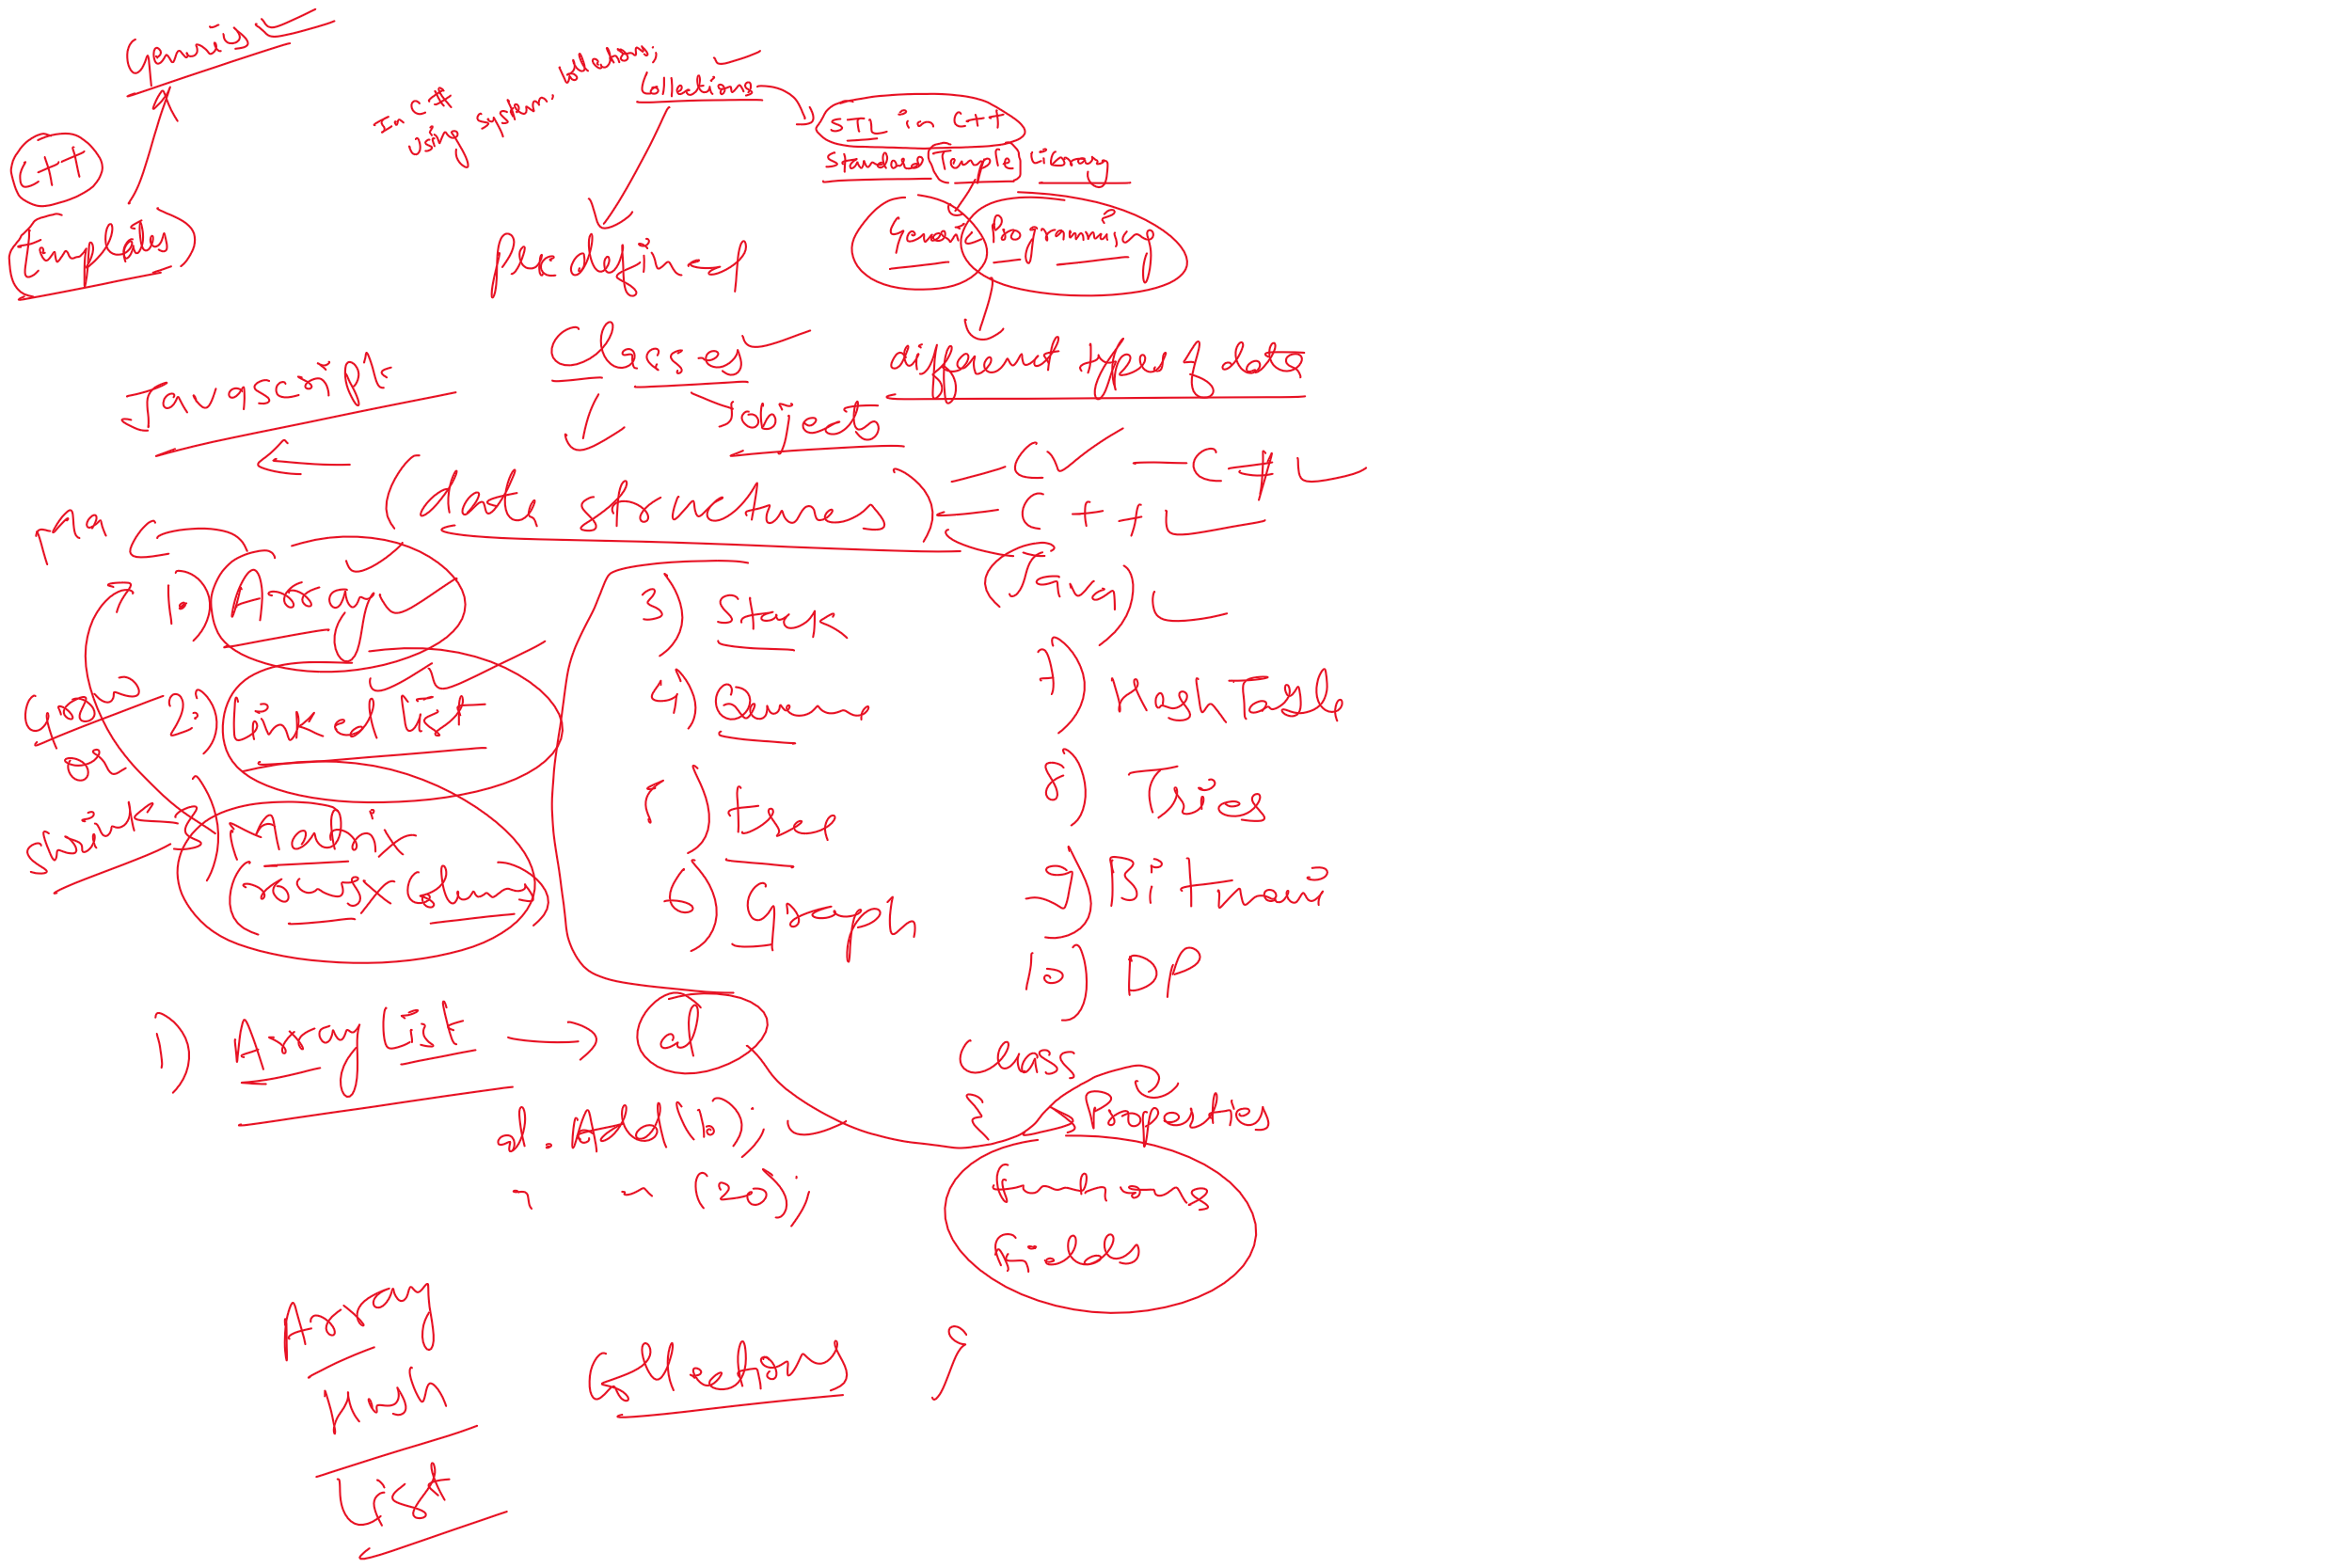 Generics
In C#
Using System.Collections;
Collections
STL in C++
Standard Temple Library
C++
Templates
Generic Programming
Predefined
Classes
different types of data
Javascript
objects
(data structures)
C
C#
C++
(Java)
1) Array
2) Linked List
Grow
or
Shrink
3) Matrix
(rows x colums)
3) Stack
4) Queue
5) tree
6) Graph
7) Hash Table
8) Tries
9) Bit mani
10) DP
1) Array List
al
al.Add(10);
" " (20);
Class
Properties
functions
Fields
Array
Hash
List
Collections